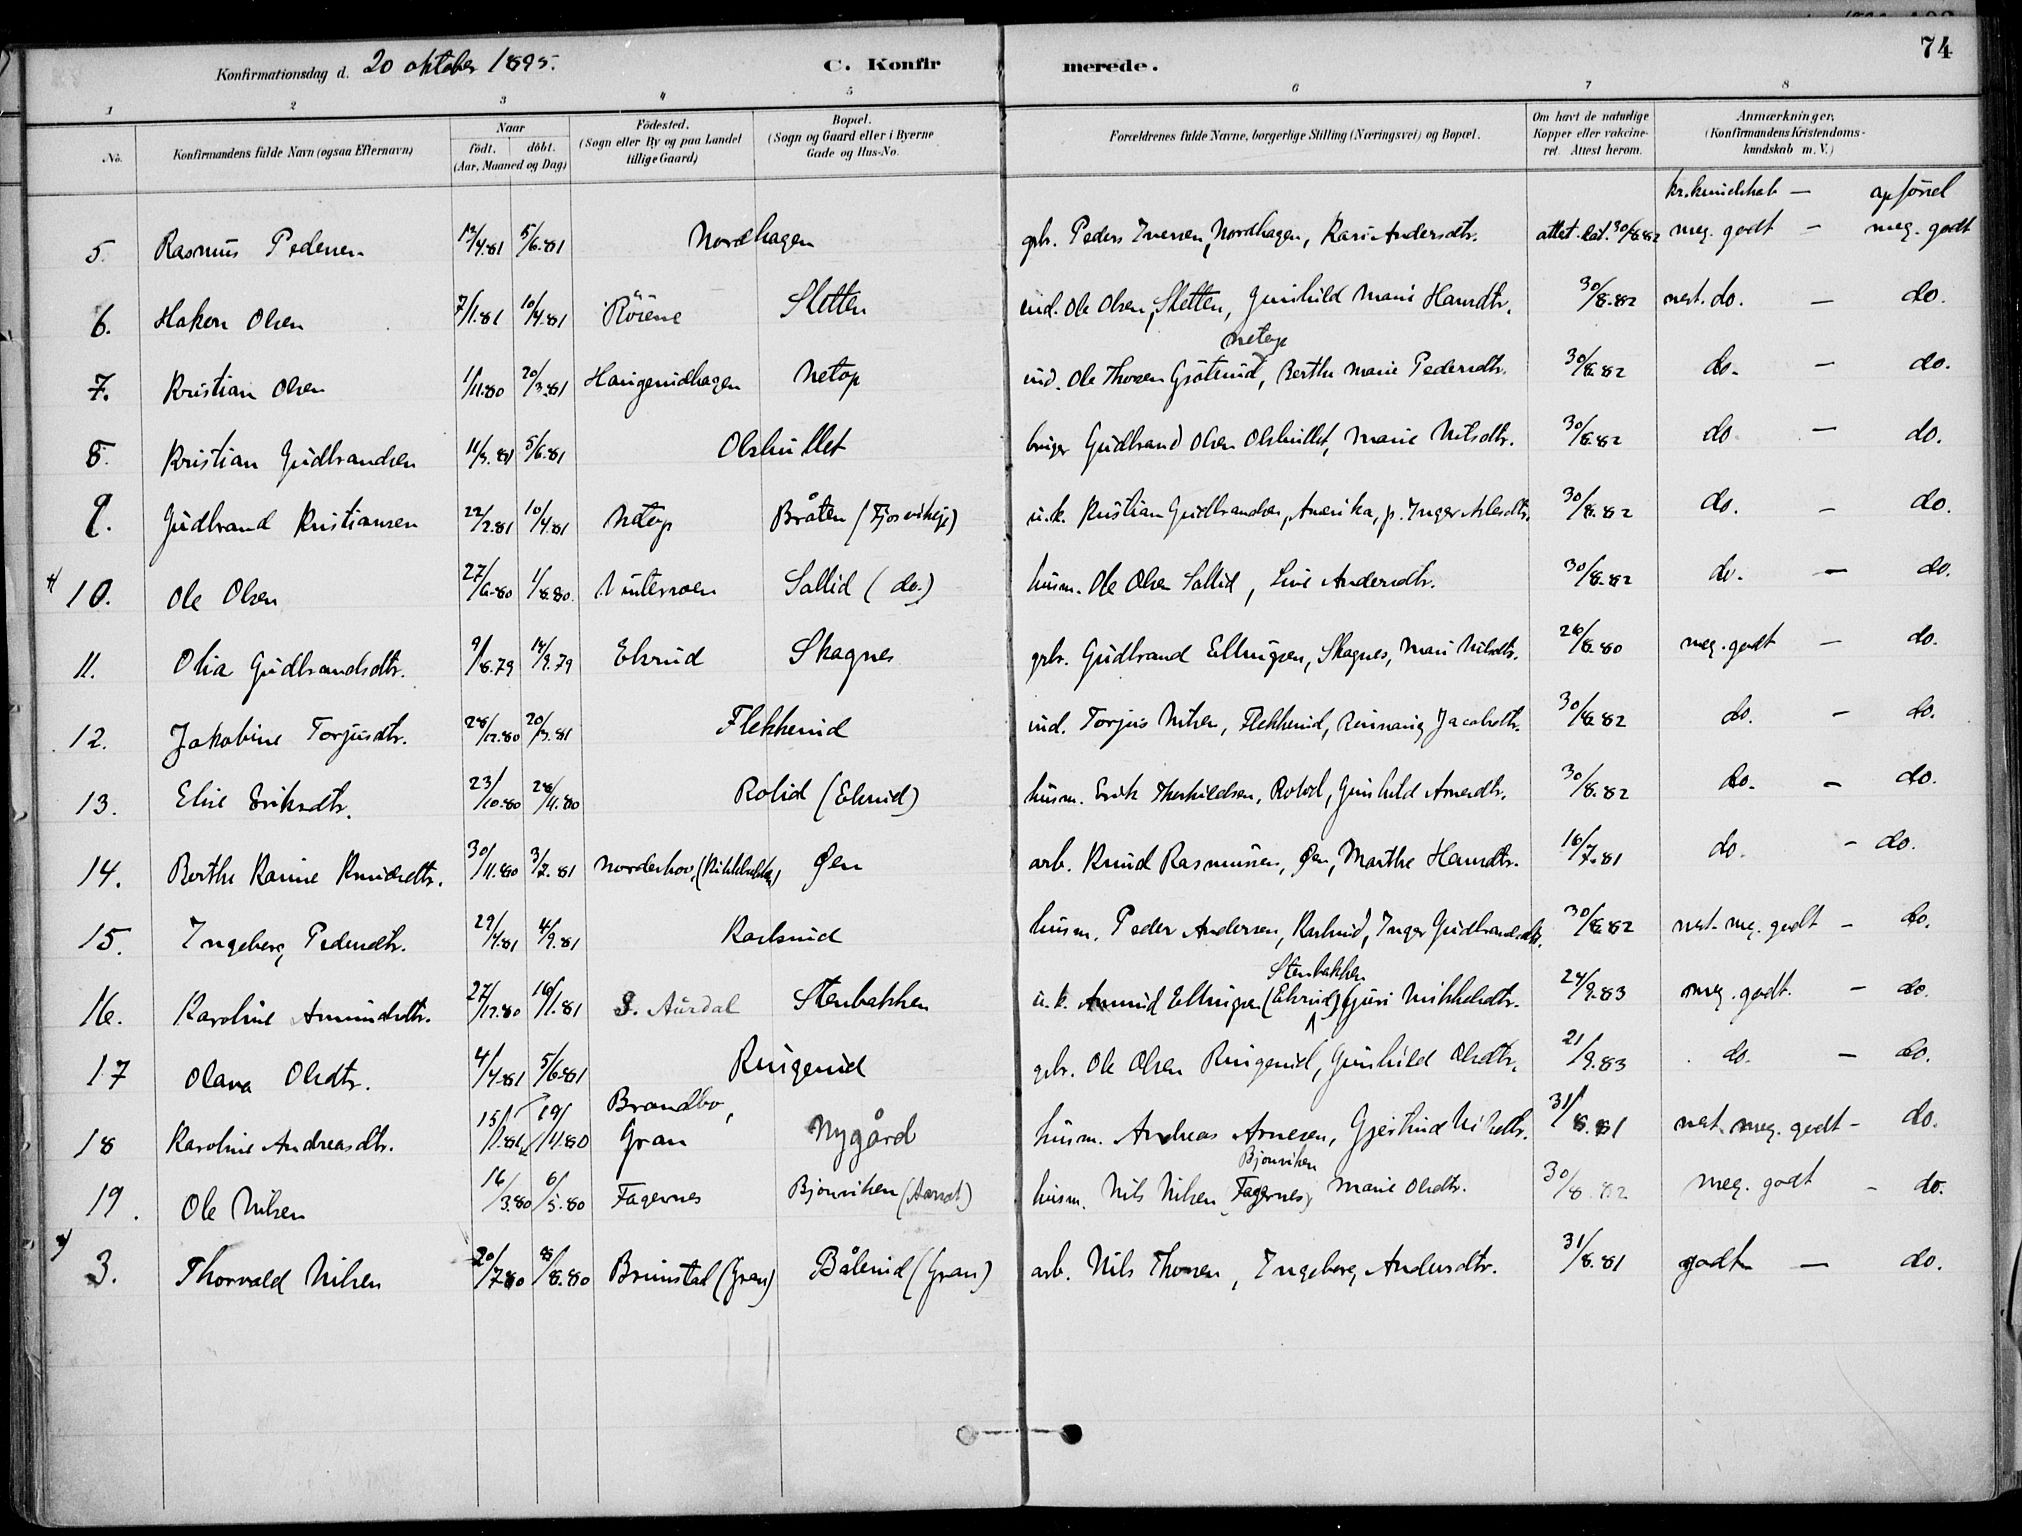 74
Konfirmationsdag d. 20 oktober 1895. C. Konfir merede.
1 2 3 4 5 6 7 8
No. Konfirmandens fulde Navn (ogsaa Efternavn) Naar födt. döbt. (Aar, Maaned og Dag) Födested. (Sogn eller By og paa Landet tillige Gaard) Bopæl. (Sogn og Gaard eller i Byerne Gade og Hus-No. Forældrenes fulde Navne, borgerlige Stilling (Næringsvei) og Bopæl. Om havt de naturlige Kopper eller vakcineret. Attest herom. Anmærkninger, (Konfirmandens Kristendomskundskab m. V.)
kr.kundskab — opförsel
5. Rasmus Pedersen 12/4.81 5/6.81 Nordhagen gbr. Peders Iversen, Nordhagen, Kari Andersdtr. attest. dat. 30/8.82 meg. godt — meg. godt
6. Hakon Olsen 7/1.81 10/4.81 Röiene Sletten ind. Ole Olsen, Sletten, Gunhild Marie Hansdtr. 30/8.82 nest. do. — do.
netop
7. Kristian Olsen 1/11.80 20/3.81 Haugerudhagen Netop ind. Ole Thoresen Gsöterud, Berthe Marie Pedersdtr. 30/8.82 do. — do.
8. Kristian Gudbrandsen 11/3.81 5/6.81 Olshullet bruger Gudbrand Olsen Olshullet, Marie Nilsdtr. 30/8.82 do — do.
9. Gudbrand Kristiansen 22/2.81 10/4.81 Netop Bråten (Fjosvikeje) u.k. Kristian Gudbrandsen, Amerika, p. Inger 30/8.82 do. — do.
10. Ole Olsen 27/6.80 1/8.80 Vinterroen Sollid (do.) husm. Ole Olsen Sollid, Live Andersdtr. 30/8.82 do. — do.
11. Olia Gudbrandsdtr. 9/8.79 14/9.79 Ekrud Skagnes gbr. Gudbrand Ellingsen, Skagnes, Mari Nilsdtr. 26/8.80 meg. godt — do.
12. Jakobine Torjusdtr. 28/12.80 20/3.81 Flekkerud ind. Torjus Nilsen, Flekkerud, Jacobsdtr. 30/8.82 do. — do.
13. Elise Eriksdtr. 23/10.80 28/11.80 Rolid (Ekrud) husm. Erik Therkildsen, Rolid, Gunhild Arnesdtr. 30/8.82 do. — do.
14. Berthe Karine Knudsdtr. 30/11.80 3/7.81 Norderhov, Øen arb. Knud Rasmussen, Øen, Marthe Hansdtr. 16/7.81 do. — do.
15. Ingeborg Pedersdtr. 29/4.81 4/9.81 Karlsrud husm. Peder Andersen, Karlsrud, Inger Gudbrandsdtr. 30/8.82 nest. meg. godt — do.
Stenbakken
16. Karoline Amundsdtr. 27/12.80 16/1.81 S. Aurdal Stenbakken u.k. Amund Ellingsen (Ekrud) Guri Mikkelsdtr. 24/9.83 meg. godt. — do.
17 Olava Olsdtr. 4/4.81 5/6.81 Ringerud gbr. Ole Olsen Ringerud, Gunhild Olsdtr. 21/9.83 do. — do.
18 Karoline Andreasdtr. 15/1.81 19/11.80 Brandbo, Gran Nygård husm. Andreas Arnesen, Gjertrud Nilsdtr. 31/8.81 nest. meg. godt — do.
Bjonviken
19. Ole Nilsen 16/3.80 6/5.80 Fagernes Bjonviken husm. Nils Nilsen Fagernes, Marie Olsdtr. 30/8.82 meg. godt — do.
3. Thorvald Nilsen 20/7.80 8/8.80 Brunstad (Gran) Bålerud (Gran) arb. Nils Thoresen, Ingeborg Andersdtr. 31/8.81 godt — do.